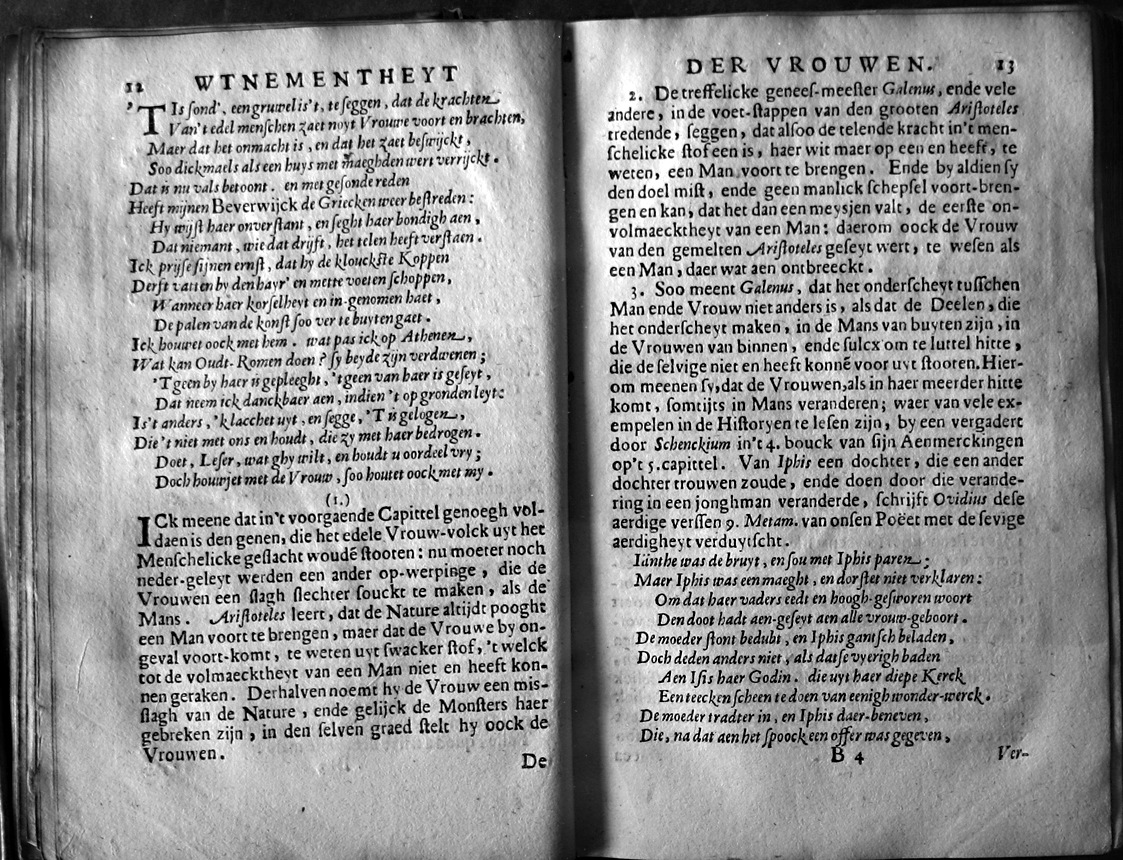 12 WTNEMENTHEYT
'T Is ſond', een gruwel is't, te ſeggen, dat de krachten
Van't edel menſchen zaet noyt Vrouwe voort en brachten,
Maer dat het onmacht is, en dat het zaet beſwijckt,
Soo dickmaels als een huys met maeghden wert verrijckt.
Dat is nu vals betoont. en met geſonde reden
Heeft mijnen Beverwijck de Griecken weer beſtreden:
Hy wijſt haer onverſtant, en ſeght haer bondigh aen,
Dat niemant, wie dat drijft, het telen heeft verſtaen.
Ick prijſe ſijnen ernſt, dat hy de klouckſte Koppen
Derft vatten by den hayr' en mette voeten ſchoppen,
Wanneer haer korſelheyt en in-genomen haet,
De palen van de konſt ſoo ver te buyten gaet.
Ick houwet oock met hem. wat pas ick op Athenen,
Wat kan Oudt-Romen doen? ſy beyde zijn verdwenen;
'T geen by haer is gepleeght, 't geen van haer is geſeyt,
Dat neem ick danckbaer aen, indien 't op gronden leyt:
Is't anders, 'k lacchet uyt, en ſegge, 'T is gelogen,
Die 't niet met ons en houdt, die zy met haer bedrogen.
Doet, Leſer, wat ghy wilt, en houdt u oordeel vry;
Doch houwjet met de Vrouw, ſoo houtet oock met my.
(1.)
ICk meene dat in't voorgaende Capittel genoegh vol-
daen is den genen, die het edele Vrouw-volck uyt het
Menſchelicke geſlacht woudē ſtooten: nu moeter noch
neder-geleyt werden een ander op-werpinge, die de
Vrouwen een ſlagh ſlechter ſouckt te maken, als de
Mans. Ariſtoteles leert, dat de Nature altijdt pooght
een Man voort te brengen, maer dat de Vrouwe by on-
geval voort-komt, te weten uyt ſwacker ſtof, 't welck
tot de volmaecktheyt van een Man niet en heeft kon-
nen geraken. Derhalven noemt hy de Vrouw een mis-
ſlagh van de Nature, ende gelijck de Monſters haer
gebreken zijn, in den ſelven graed ſtelt hy oock de
Vrouwen.
De
DER VROUWEN. 13
2. De treffelicke geneeſ-meeſter Galenus, ende vele
andere, in de voet-ſtappen van den grooten Ariſtoteles
tredende, ſeggen, dat alſoo de telende kracht in't men-
ſchelicke ſtof een is, haer wit maer op een en heeft, te
weten, een Man voort te brengen. Ende by aldien ſy
den doel miſt, ende geen manlick ſchepſel voort-bren-
gen en kan, dat het dan een meysjen valt, de eerſte on-
volmaecktheyt van een Man: daerom oock de Vrouw
van den gemelten Ariſtoteles geſeyt wert, te weſen als
een Man, daer wat aen ontbreeckt.
3. Soo meent Galenus, dat het onderſcheyt tuſſchen
Man ende Vrouw niet anders is, als dat de Deelen, die
het onderſcheyt maken, in de Mans van buyten zijn, in
de Vrouwen van binnen, ende ſulcx om te luttel hitte,
die de ſelvige niet en heeft konnē voor uyt ſtooten. Hier-
om meenen ſy, dat de Vrouwen, als in haer meerder hitte
komt, ſomtijts in Mans veranderen; waer van vele ex-
empelen in de Hiſtoryen te leſen zijn, by een vergadert
door Schenckium in't 4. bouck van ſijn Aenmerckingen
op't 5. capittel. Van Iphis een dochter, die een ander
dochter trouwen zoude, ende doen door die verande-
ring in een jonghman veranderde, ſchrijft Ovidius deſe
aerdige verſſen 9. Metam. van onſen Poëet met de ſevige
aerdigheyt verduytſcht.
Iänthe was de bruyt, en ſou met Iphis paren;
Maer Iphis was een maeght, en dorſtet niet verklaren:
Om dat haer vaders eedt en hoogh-geſworen woort
Den doot hadt aen-geſeyt aen alle vrouw-geboort.
De moeder ſtont bedubt, en Iphis gantſch beladen,
Doch deden anders niet, als datſe vyerigh baden
Aen Iſis haer Godin. die uyt haer diepe Kerck
Een teecken ſcheen te doen van eenigh wonder-werck.
De moeder tradter in, en Iphis daer-beneven,
Die, na dat aen het ſpoock een offer was gegeven,
B 4 Ver-